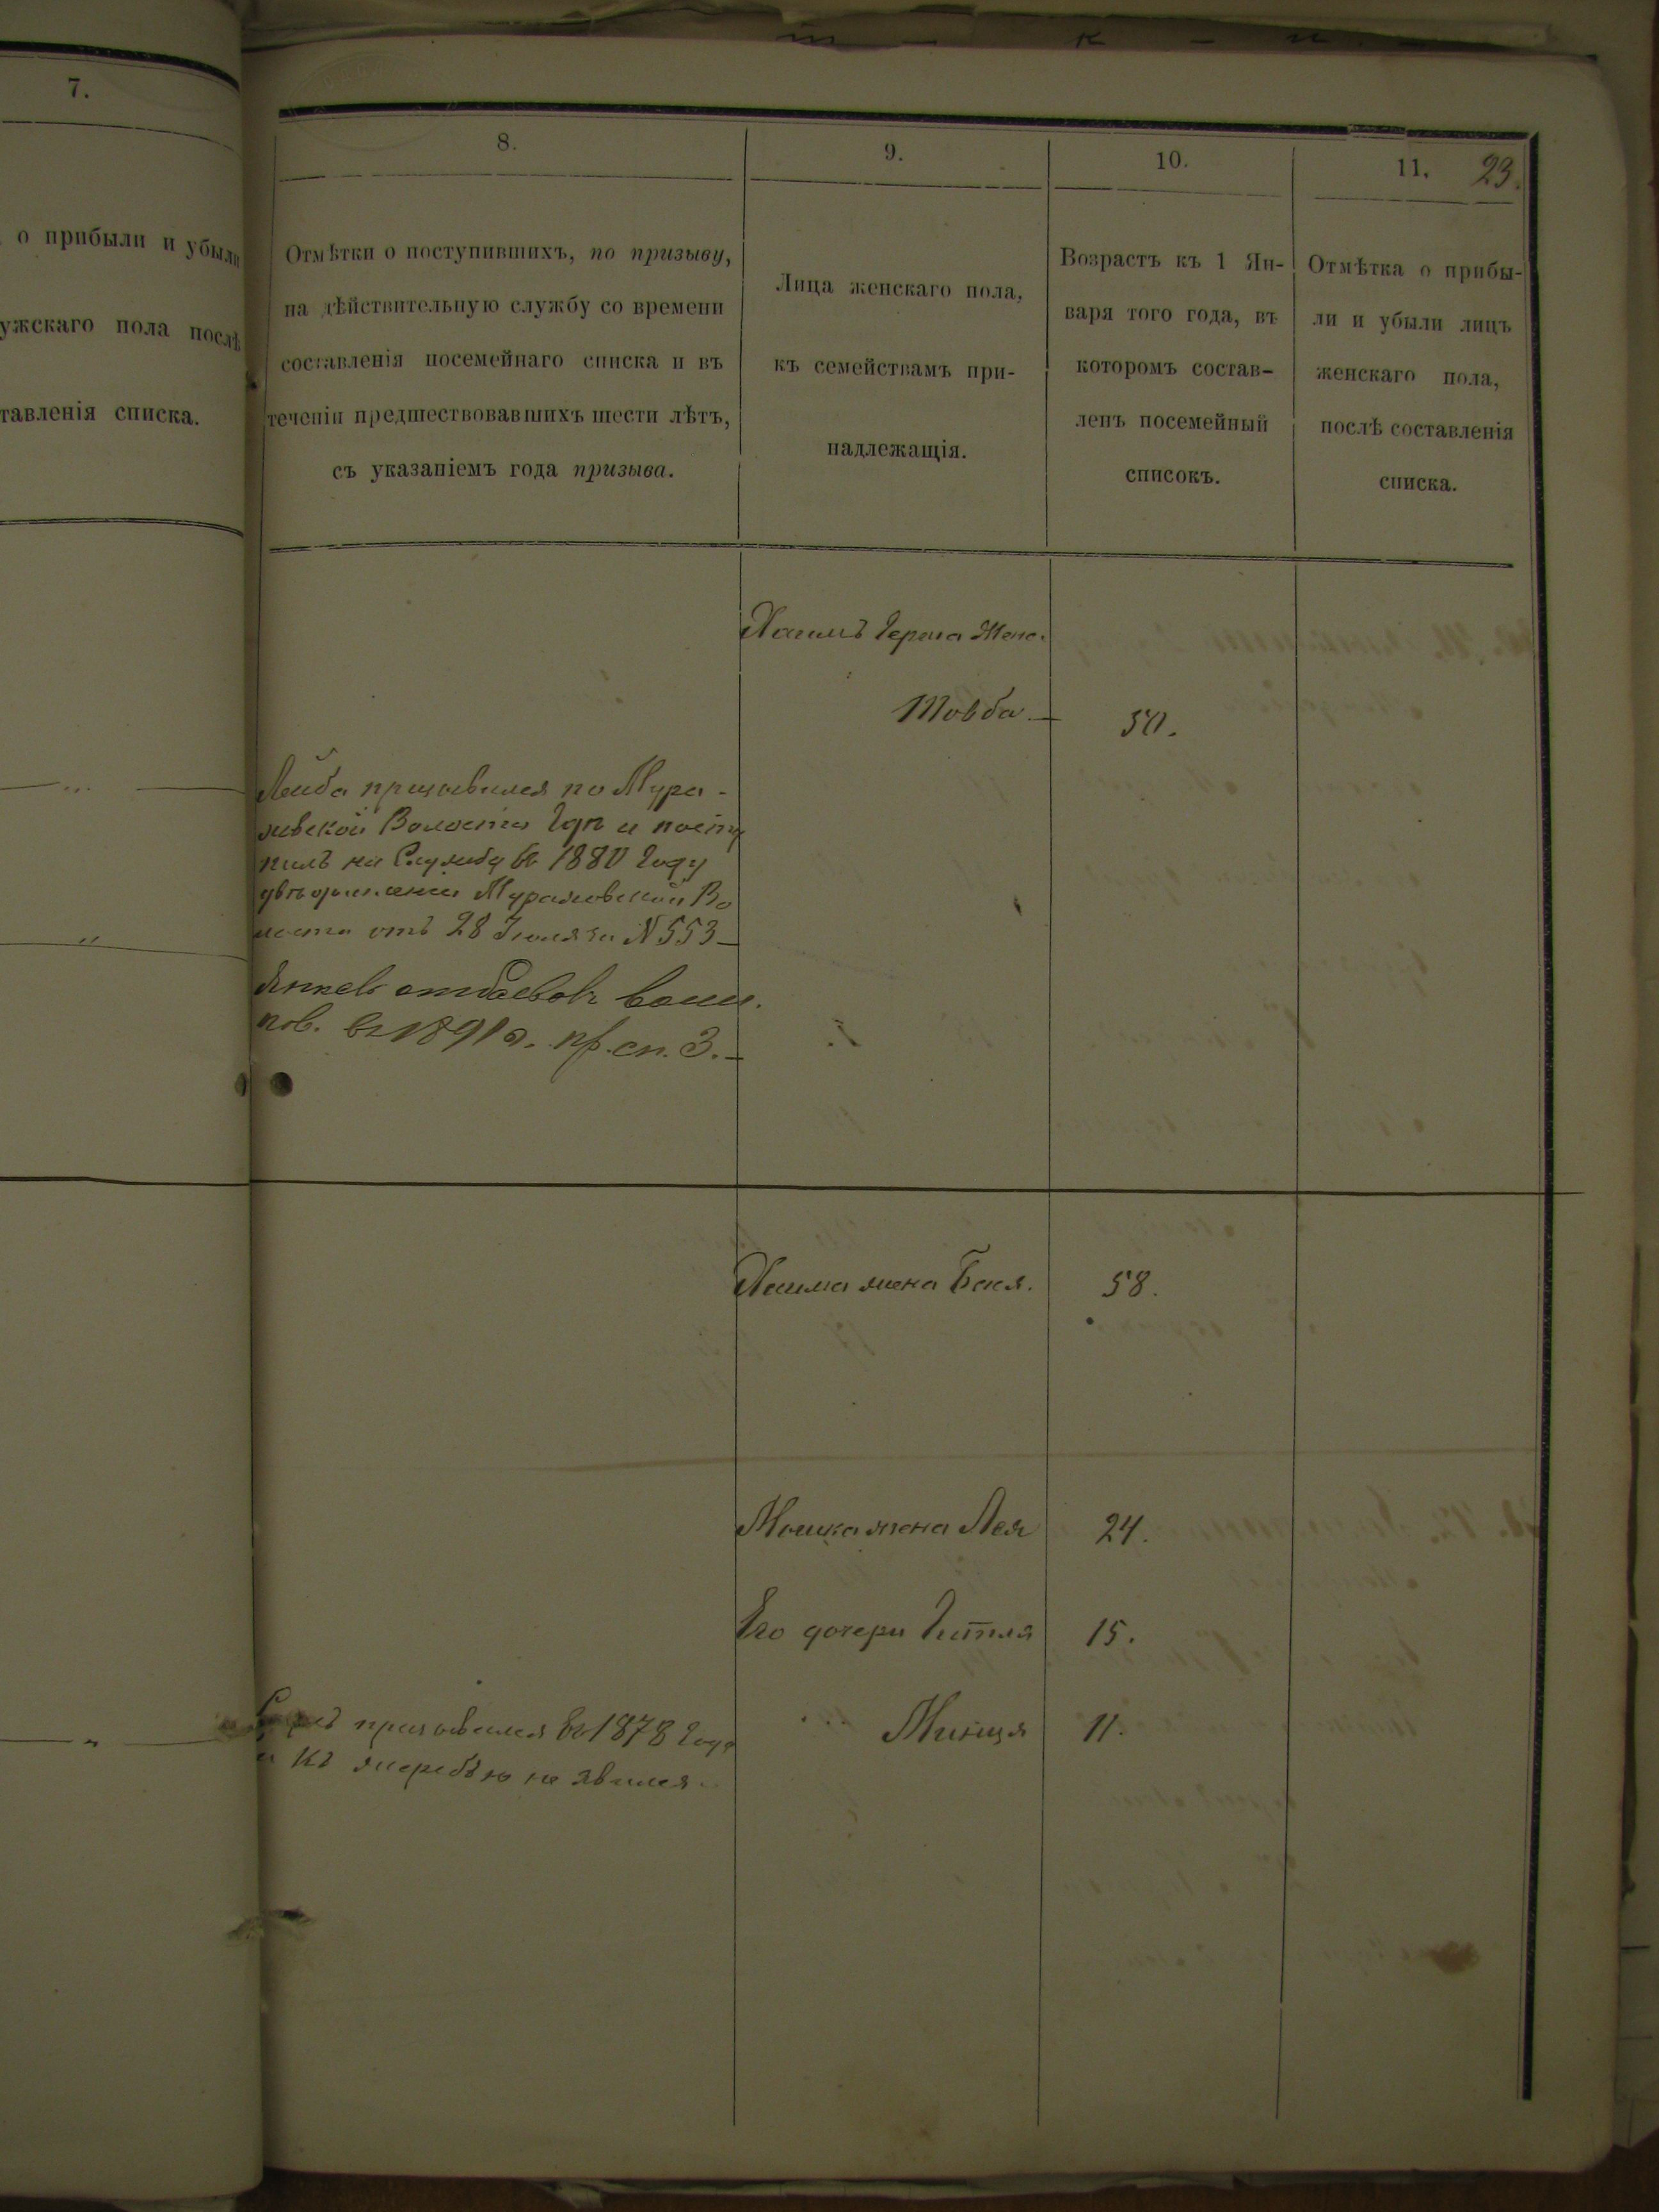 7.
о прибыли и убыли
ужскаго пола послѣ
тавленія списка.
8.
Отмѣтки о поступившихъ, по призыву,
на дѣйствительную службу со времени
составленія посемейнаго списка и въ
теченіи предшествовавшихъ шести лѣтъ,
съ указаніемъ года призыва.
9.
Лица женскаго пола,
къ семействамъ при-
надлежащія.
10.
Возрастъ къ 1 Ян-
варя того года, въ
которомъ состав-
ленъ посемейный
списокъ.
11.
23.
Отмѣтка о прибы-
ли и убыли лицъ
женскаго пола,
послѣ составленія
списка.
Хаимъ Герша Жена.
Товба. 50.
Лейба призывался по Мура-
Волости и посту
пилъ на Службу въ 1880 Году
Во
лости отъ 28 Іюля за N 553
Янкель воин.
пов. въ 1891 г. пр. сп. 3.
Хаима жена Бася. 58.
Мошка жена Лея 24.
Его дочери Гитля 15.
Минця 11.
призывался въ 1878 Году
и къ жеребью не явился.